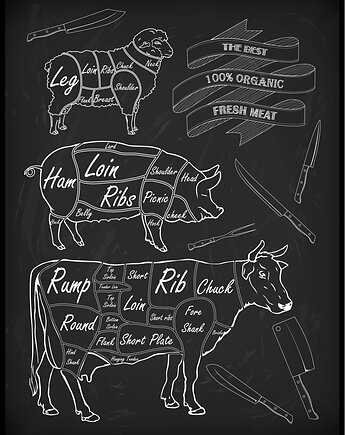 THE BEST
100% ORGANIC
FRESH MEAT
Leg
Loin
Ribs
Chuck
Neck
Shoulder
Flank
Breast
Lard
Ham
Loin
Ribs
Shoulder
Head
Picnic
cheek
Belly
Hock
Rump
Top
Sirloin
Tender Loin
Short
Loin
Rib
Chuck
Round
Top
Sirloin
Bottom
Sirloin
Short ribs
Fore
Shank
Flank
Short Plate
Hind
Shank
Hanging Tender